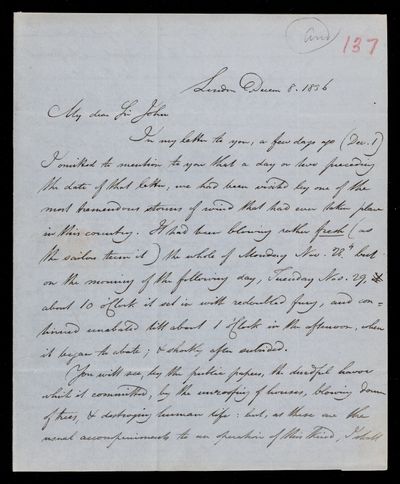 And
137
London Decem 8. 1836
My dear Sir John
In my letter to you, a few days ago (Dec. 1)
I omitted to mention to you that a day or two preceding
the date of that letter, we had been visited by one of the
most tremendous storms of wind that had ever taken place
in this country. It had been blowing rather fresh (as
the sailors term it) the whole of Monday Nov. 28th but
on the morning of the following day, Tuesday Nov. 29,
about 10 o'Clock it set in with redoubled fury, and con=
tinued unabated till about 1 o'Clock in the afternoon, when
it began to abate; & shortly after subsided.
You will see, by the public papers, the dreadful havoc
which it committed, by the unroofing of houses, blowing down
of trees, & destroying human life: but, as these are the
usual accompaniments to an operation of this kind, I shall